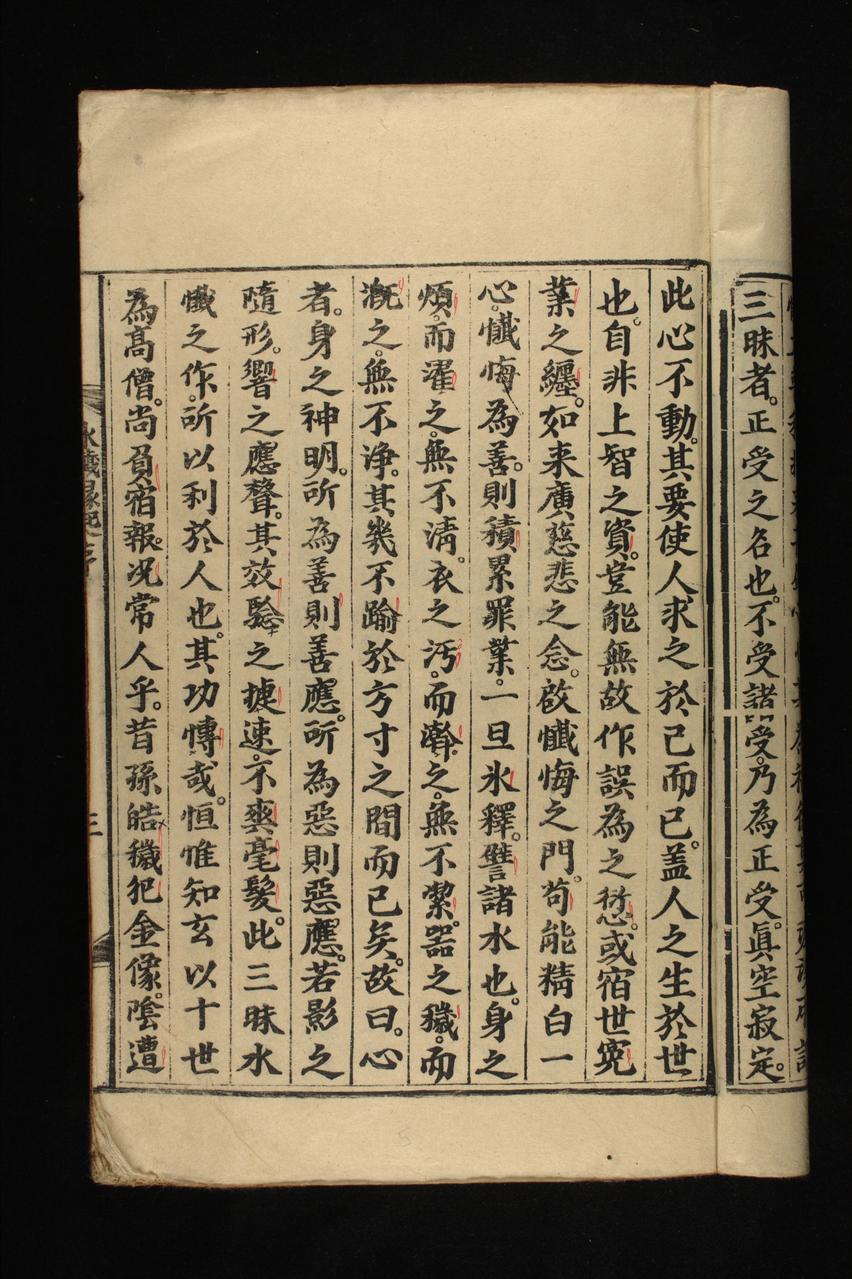 三昧者。正受之名也。不受諸受。乃為正受。真空寂定。
此心不動。其要使人求之於己而已。盖人之生於世
也。自非上智之資。豈能無故作誤為之愆。或宿世冤
業之纏。如来廣慈悲之念。啟懺悔之門。苟能精白一
心。懺悔為善。則積累罪業。一旦氷釋。譬諸水也。身之
煩。而濯之。無不清。衣之汚。而瀚之。無不潔。器之穢。而
溉之。無不淨。其幾不踰於方寸之間而已矣。故曰。心
者。身之神明。所為善則善應。所為惡則惡應。若影之
隨形。響之應聲。其效驗之捷速。不爽毫髮。此三昧水
懺之作。所以利於人也。其功愽哉。恒惟知玄以十世
為髙僧。尚負宿報。况常人乎。昔孫皓穢犯金像。陰遭
水懺縁起序
三